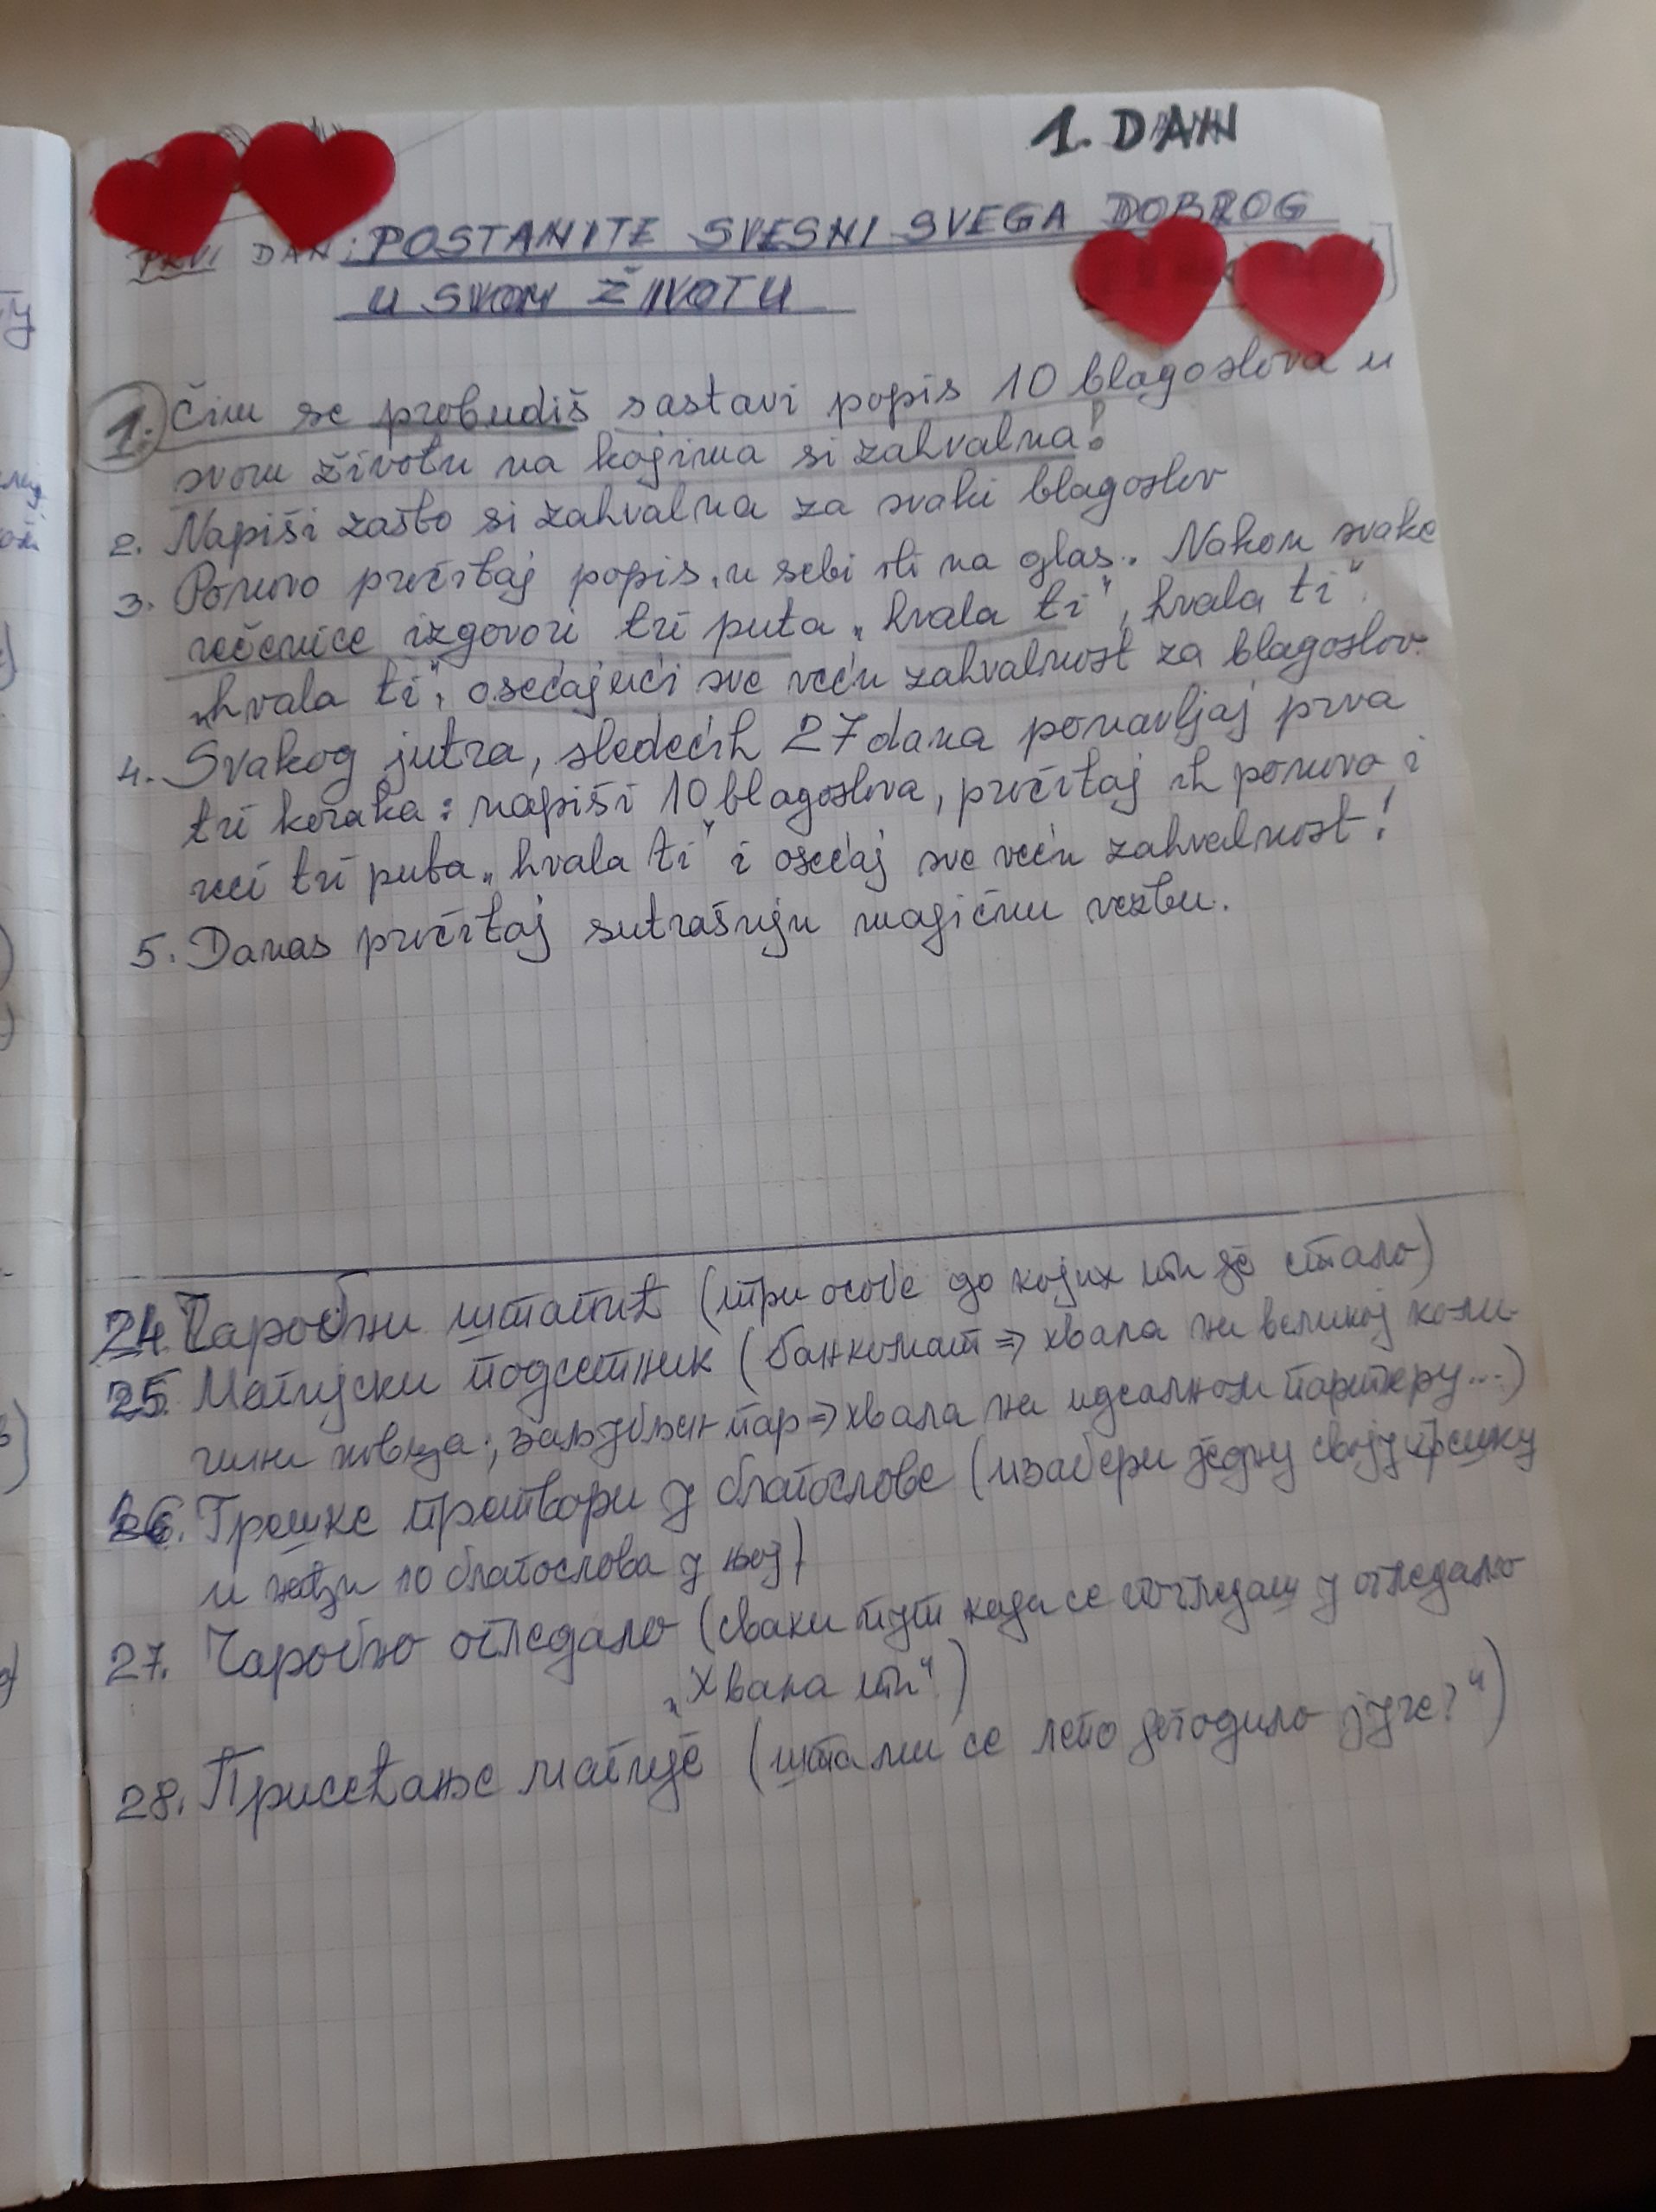 1. DAN
PRVI DAN: POSTANITE SVESNI SVEGA DOBROG
U SVOM ŽIVOTU
1. Čim se probudiš sastavi popis 10 blagoslova u
svom životu na kojima si zahvalna!
2. Napiši zašto si zahvalna za svaki blagoslov
3. Ponovo pročitaj popis, u sebi ili na glas. Nakon svake
rečenice izgovori tri puta „hvala ti", hvala ti".
„hvala ti", osećajući sve veću zahvalnost za blagoslov.
4. Svakog jutra, sledećih 27 dana ponavljaj prva
tri koraka: napiši 10 blagoslova, pročitaj ih ponovo i
reci tri puta „hvala ti" i osećaj sve veću zahvalnost!
5. Danas pročitaj sutrašnju magičnu vezbu.
24. Чаробни штапић (три особе до којих ти је стало)
25. Магијски подсетник (банкомат ⇒ хвала на великој коли-
чини новца; заљубљен пар ⇒ хвала на идеалном партнеру...)
26. Грешке претвори у благослове (изабери једну своју грешку
и нађи 10 благослова у њој)
27. Чаробно огледало (сваки пут када се погледаш у огледало
„Хвала ти")
28. Присећање магије (шта ми се лепо догодило јуче?")